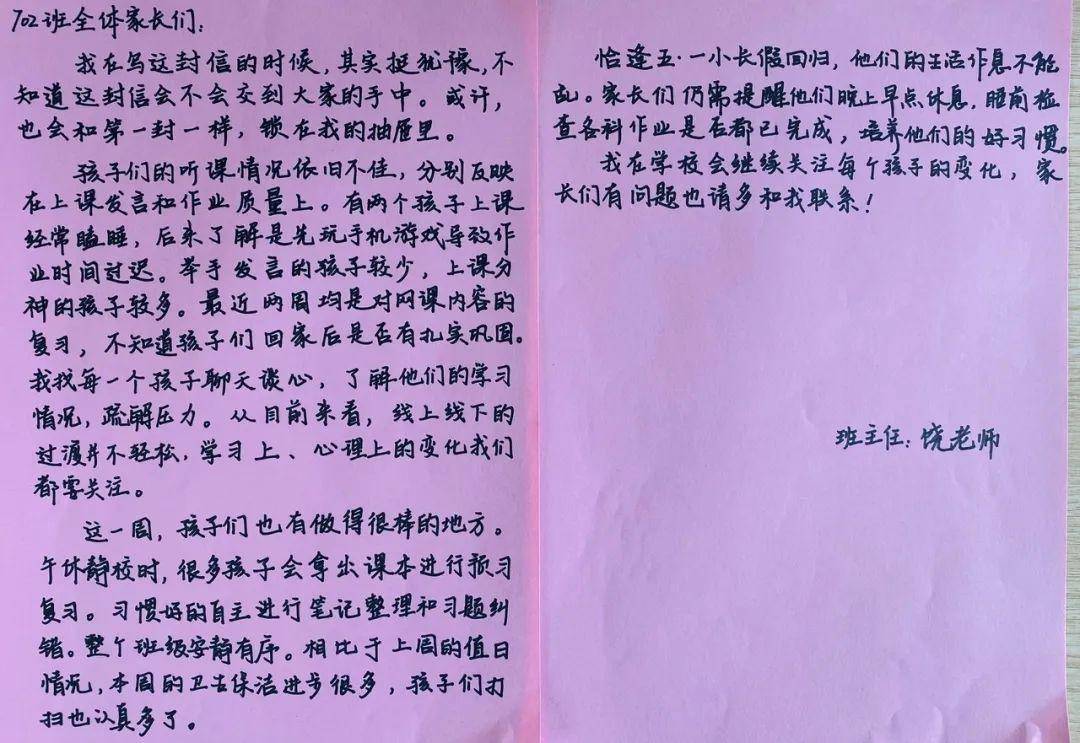 702班全体家长们:
我在写这封信的时候,其实挺犹豫,不
知道这封信会不会交到大家的手中。或许,
也会和第一封一样,锁在我的抽屉里。
孩子们的听课情况依旧不佳,分别反映
在上课发言和作业质量上。有两个孩子上课
经常瞌睡,后来了解是先玩手机游戏导致作
业时间过迟。举手发言的孩子较少,上课分
神的孩子较多。最近两周均是对网课内容的
复习,不知道孩子们回家后是否有扎实巩固。
我找每一个孩子聊天谈心,了解他们的学习
情况,疏解压力。从目前来看,线上线下的
过渡并不轻松,学习上、心理上的变化我们
都需关注。
这一周,孩子们也有做得很棒的地方。
午休静校时,很多孩子会拿出课本进行预习
复习。习惯好的自主进行笔记整理和习题纠
错。整个班级安静有序。相比于上周的值日
情况,本周的卫生保洁进步很多,孩子们打
扫也认真多了。
恰逢五·一小长假回归,他们的生活作息不能
乱。家长们仍需提醒他们晚上早点休息,睡前检
查各科作业是否都已完成,培养他们的好习惯。
我在学校会继续关注每个孩子的变化,家
长们有问题也请多和我联系!
班主任:饶老师